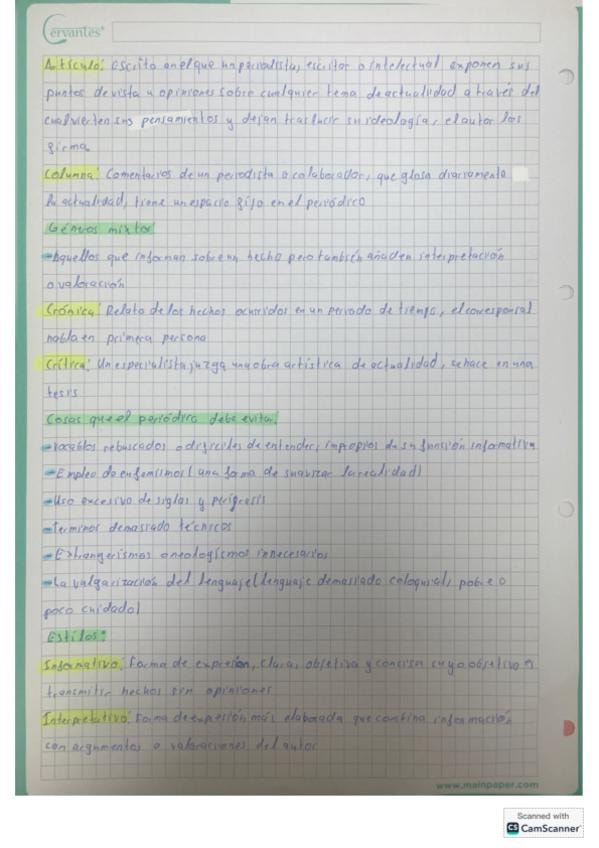 Cervantes
Artículo: Escrito en el que un periodista, escritor o intelectual exponen sus
puntos de vista u opiniones sobre cualquier tema de actualidad a través del
cual vierten sus pensamientos y dejan traslucir su ideología, el autor los
firma
Columna: Comentarios de un periodista o colaborador, que glosa diariamente
la actualidad, tiene un espacio fijo en el periódico
Géneros mixtos
-Aquellos que informan sobre un hecho pero también añaden interpretación
o valoración
Crónica: Relato de los hechos ocurridos en un periodo de tiempo, el corresponsal
habla en primera persona
Crítica: Un especialista juzga una obra artística de actualidad, se hace en una
tesis
Cosas que el periódico debe evitar:
-vocablos rebuscados o difíciles de entender, impropios de su función informativa
-Empleo de eufemismos (una forma de suavizar la realidad)
-Uso excesivo de siglas y perífrasis
-Terminos demasiado técnicos
-Extrangerismos o neologismos innecesarios
-La vulgarización del lenguaje (lenguaje demasiado coloquial, pobre o
poco cuidado)
Estilos:
Informativo: Forma de expresión, clara, objetiva y concisa cuyo objetivo es
transmitir hechos sin opiniones
Interpretativo: Forma de expresión más elaborada que combina información
con argumentos o valoraciones del autor
www.mainpaper.com
Scanned with
CS CamScanner